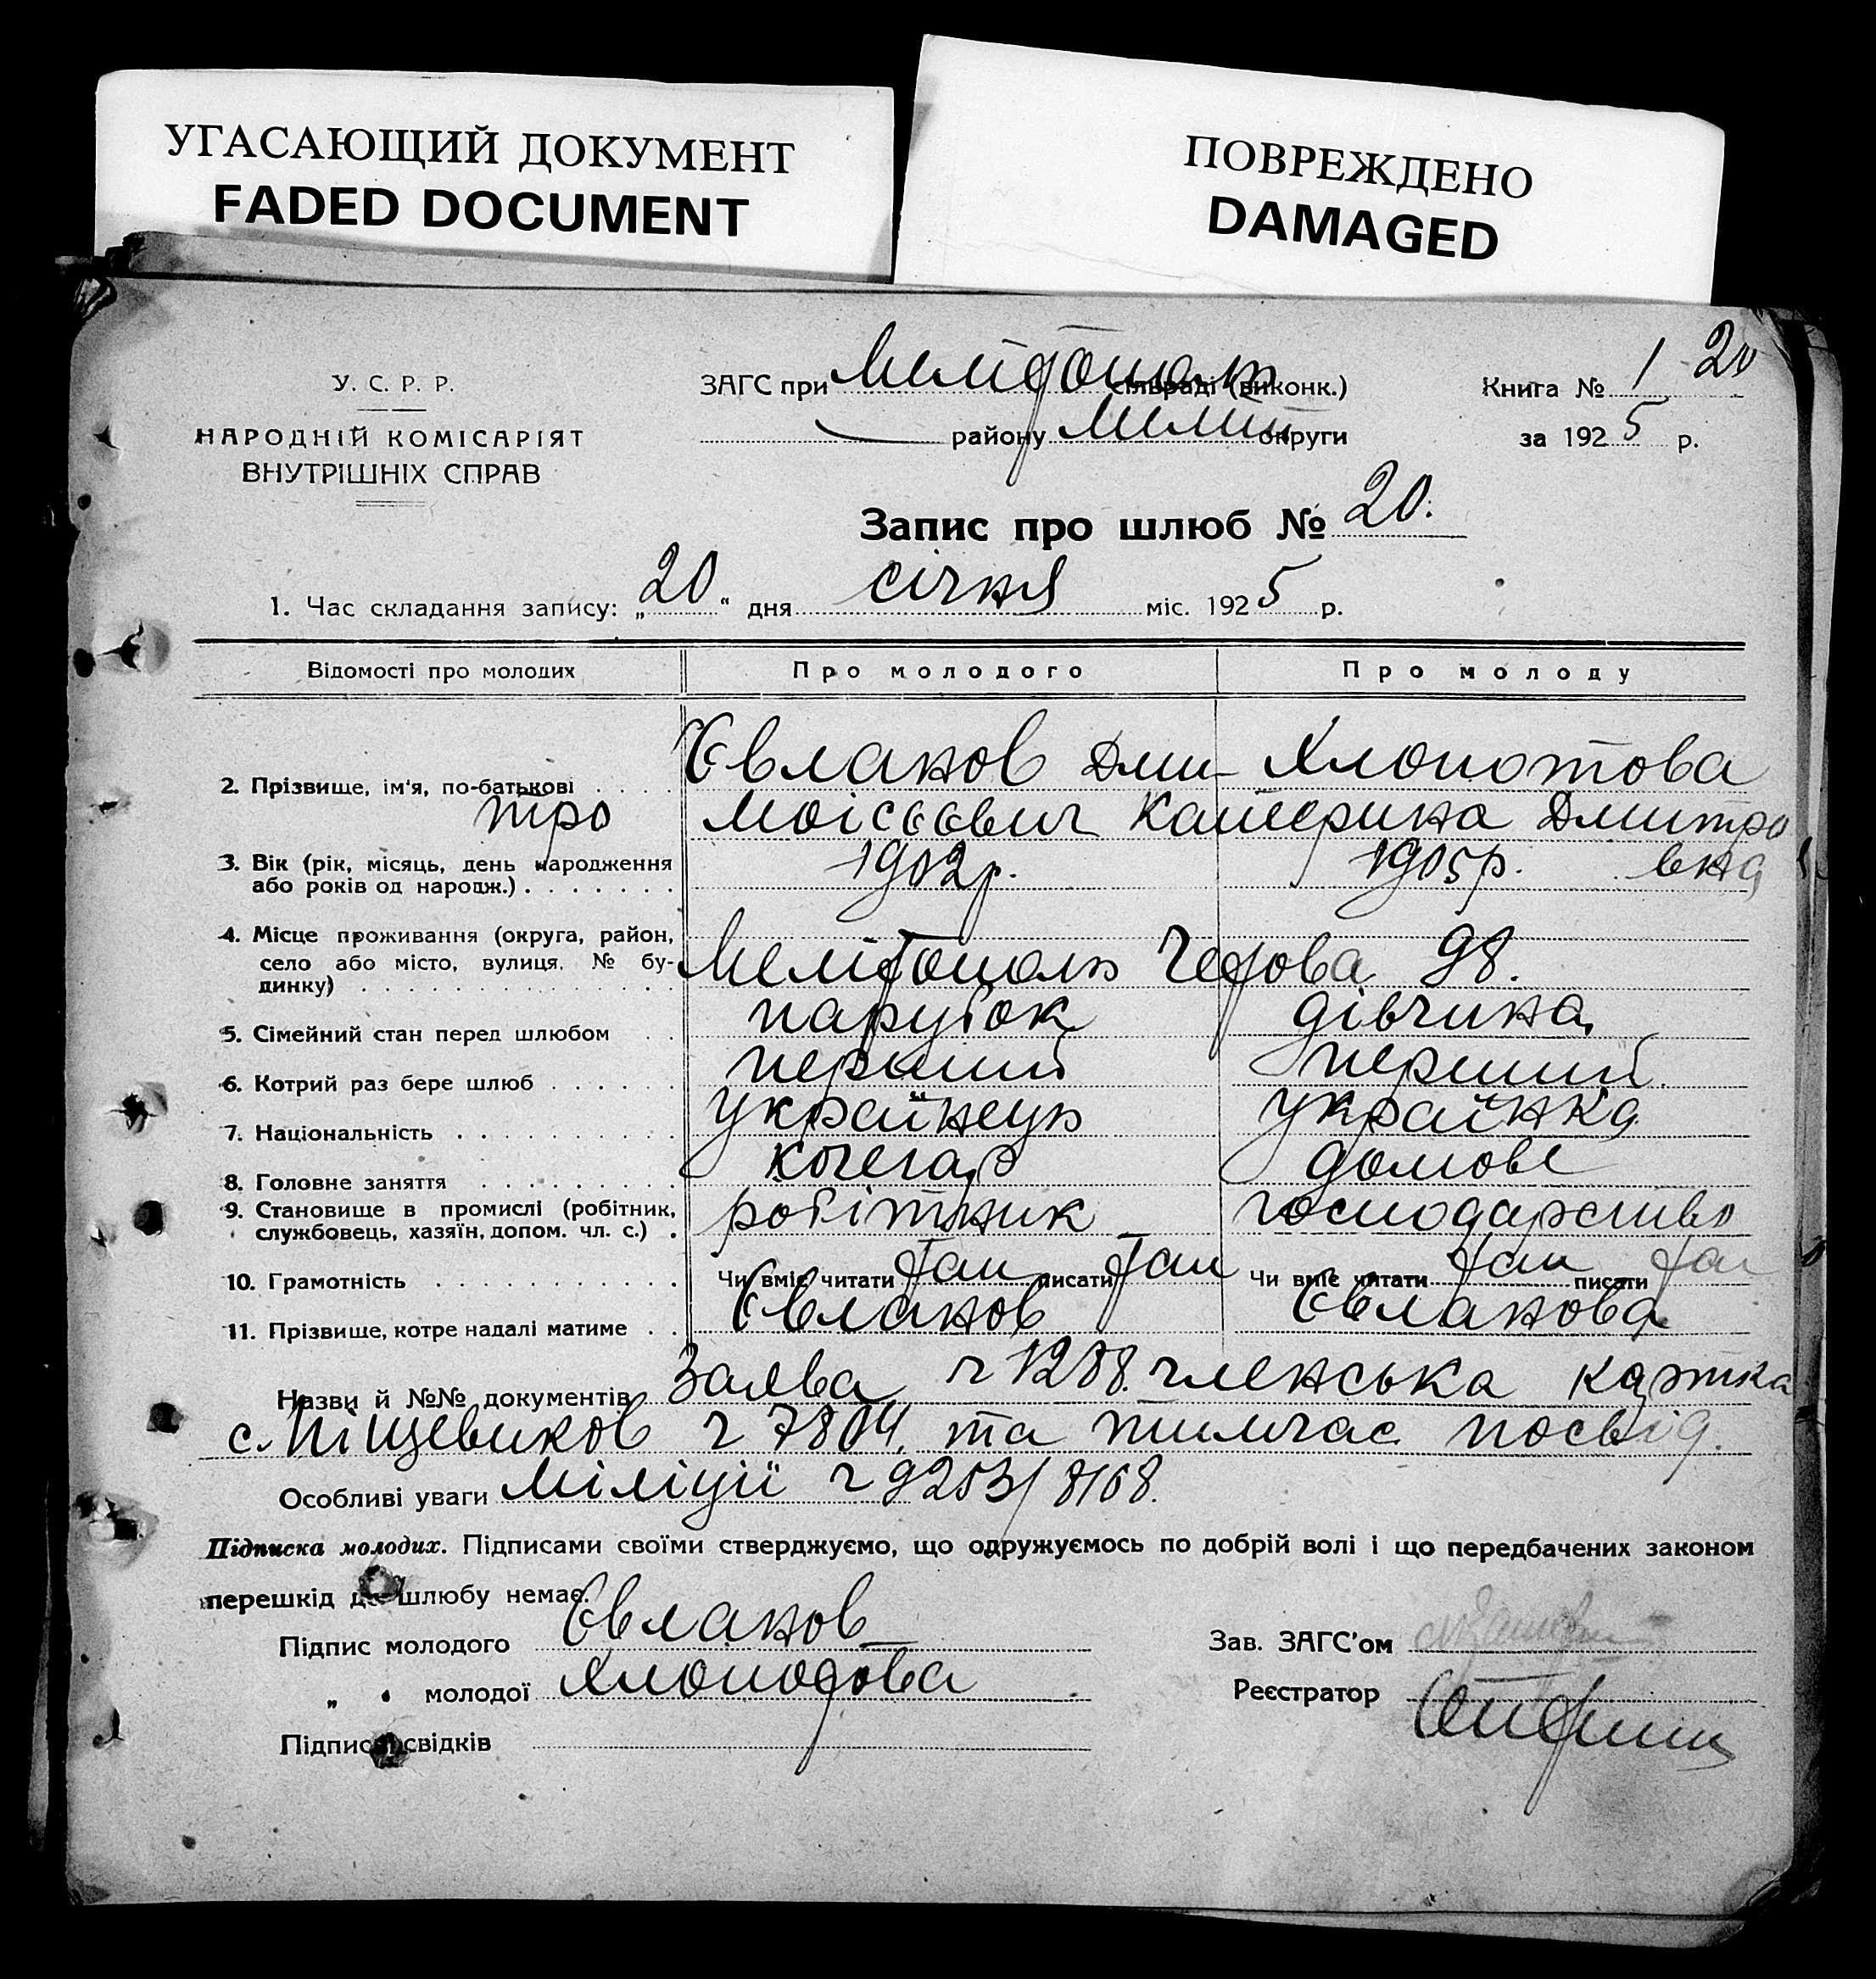 УГАСАЮЩИЙ ДОКУМЕНТ
FADED DOCUMENT
ПОВРЕЖДЕНО
DAMAGED
У. С. Р. Р.
НАРОДНІЙ КОМІСАРІЯТ
ВНУТРІШНІХ СПРАВ
ЗАГС при Мелітополь сільраді (виконк.)
району Меліт округи
Книга № 1 20
за 1925 р.
Запис про шлюб № 20.
1. Час складання запису: „20“ дня січня міс. 1925 р.
Відомості про молодих Про молодого Про молоду
2. Прізвище, ім'я, по-батькові Євланов Дми- Хлопотова
тро Моісєєвич Катерина Дмитро
3. Вік (рік, місяць, день народження або років од народж.) 1902р. 1905р. вна
4. Місце проживання (округа, район, село або місто, вулиця, № будинку) Мелітополь 98.
5. Сімейний стан перед шлюбом парубок дівчина
6. Котрий раз бере шлюб перший перший
7. Національність українець українка
8. Головне заняття кочегар домове
9. Становище в промислі (робітник, службовець, хазяїн, допом. чл. с.) робітник господарство
10. Грамотність Чи вміє читати так писати так Чи вміє читати так писати так
11. Прізвище, котре надалі матиме Євланов Євланова
Назви й №№ документів Заява ч 1288. членська картка
с. Піщевиков ч 7804. та тимчас. посвід.
Особливі уваги Міліції ч 9253/8168.
Підписка молодих. Підписами своїми стверджуємо, що одружуємось по добрій волі і що передбачених законом
перешкід до шлюбу немає.
Підпис молодого Євланов
„ • молодої Хлопотова
Підписи свідків
Зав. ЗАГС'ом
Реєстратор